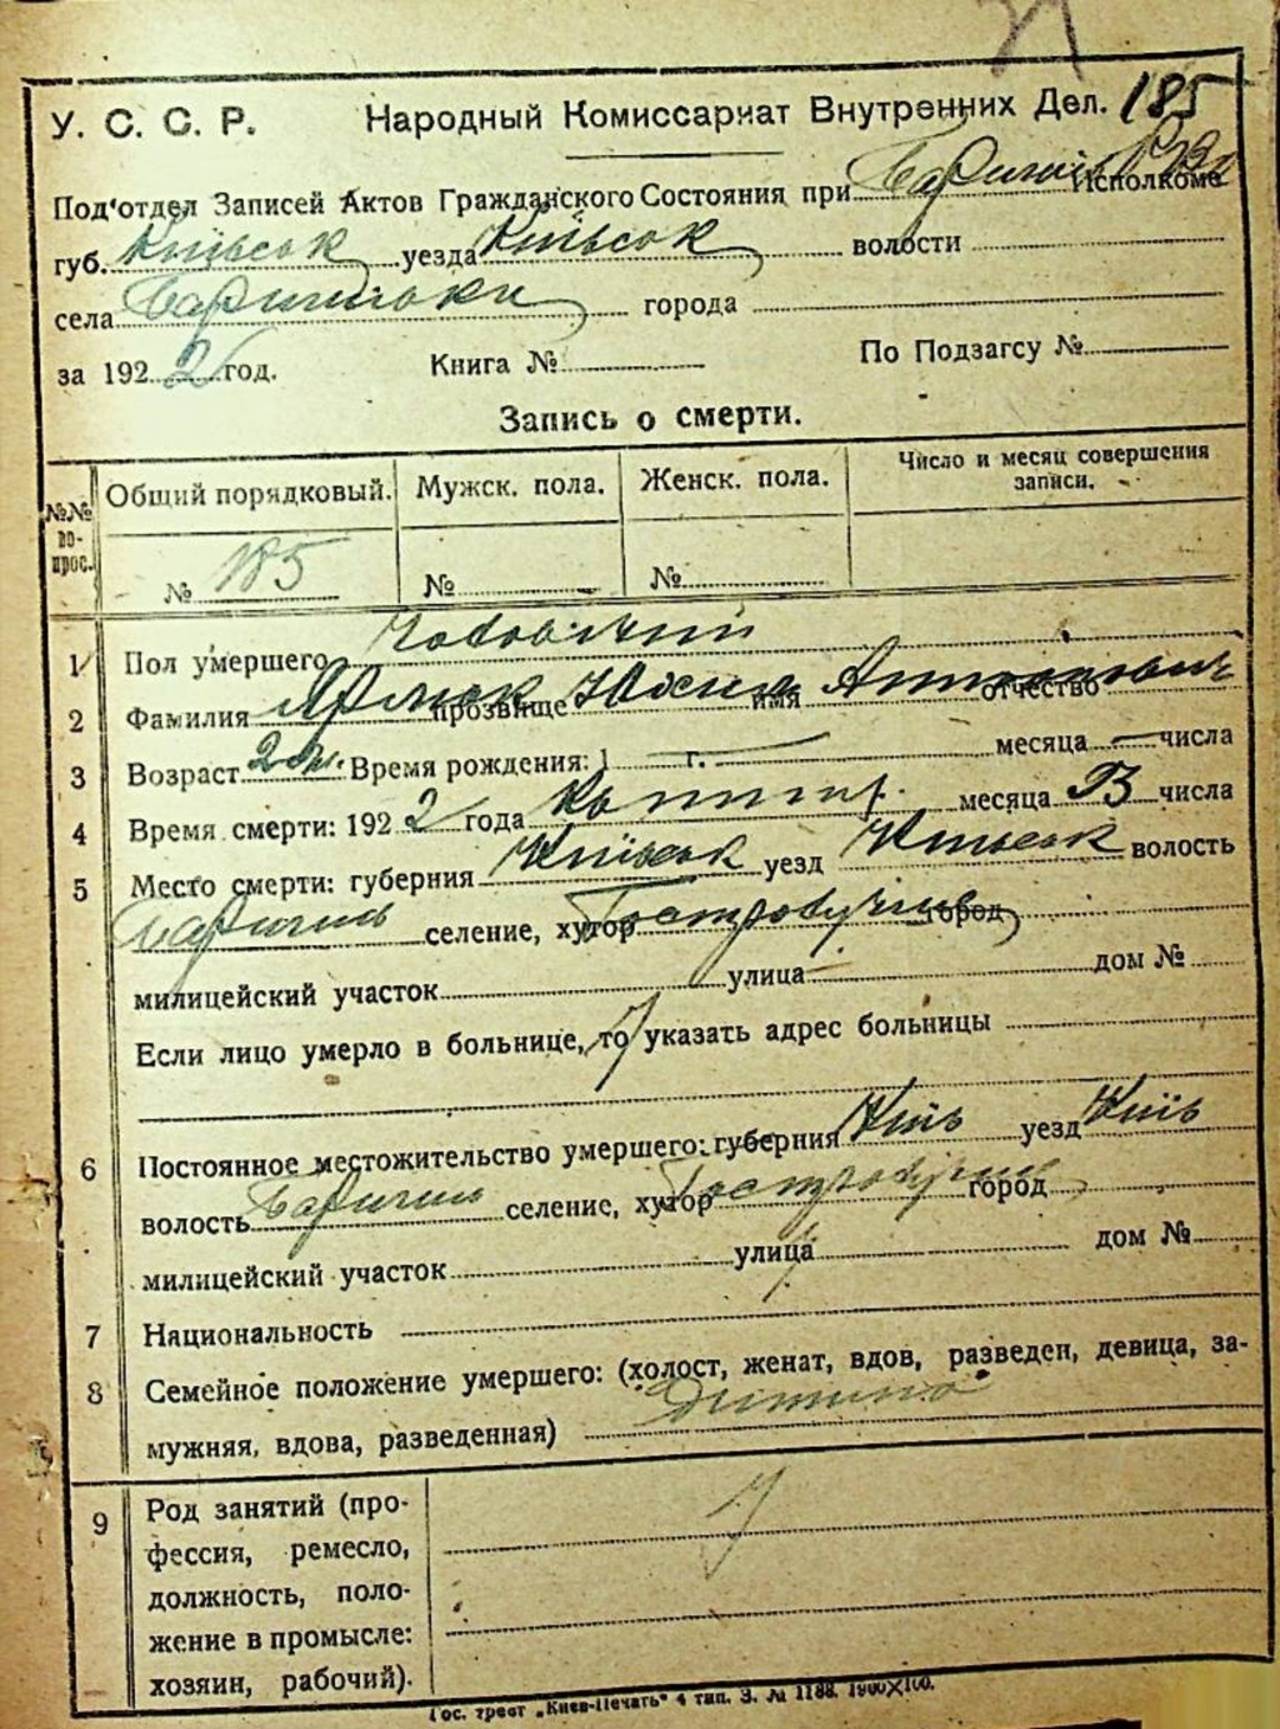 У. С. С. Р. Народный Комиссариат Внутренних Дел. 185
Под'отдел Записей Актов Гражданского Состояния при Исполкоме
губ. Київськ уезда Київськ волости
села города
за 1922 год. Книга № По Подзагсу №
Запись о смерти.
№№ вопрос. Общий порядковый. Мужск. пола. Женск. пола. Число и месяц совершения записи.
№ 185 № №
1 Пол умершего чоловічий
2 Фамилия Ярмак прозвище имя отчество
3 Возраст 2 Время рождения: 1 — г. — месяца — числа
4 Время смерти: 1922 года месяца числа
5 Место смерти: губерния Київськ уезд Київськ волость
Баришів селение, хутор город
милицейский участок улица дом №
Если лицо умерло в больнице, то указать адрес больницы
6 Постоянное местожительство умершего: губерния Київ уезд Київ
волость селение, хутор город
милицейский участок улица дом №
7 Национальность
8 Семейное положение умершего: (холост, женат, вдов, разведен, девица, за-
мужняя, вдова, разведенная) дитина
9 Род занятий (про-
фессия, ремесло,
должность, поло-
жение в промысле:
хозяин, рабочий).
Гос. трест „Киев-Печать" 4 тип. З. № 1188. 1900X100.